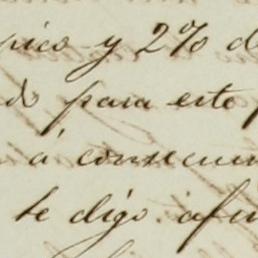 pico y 2% d
do para este
á consecuen
te digo. afu